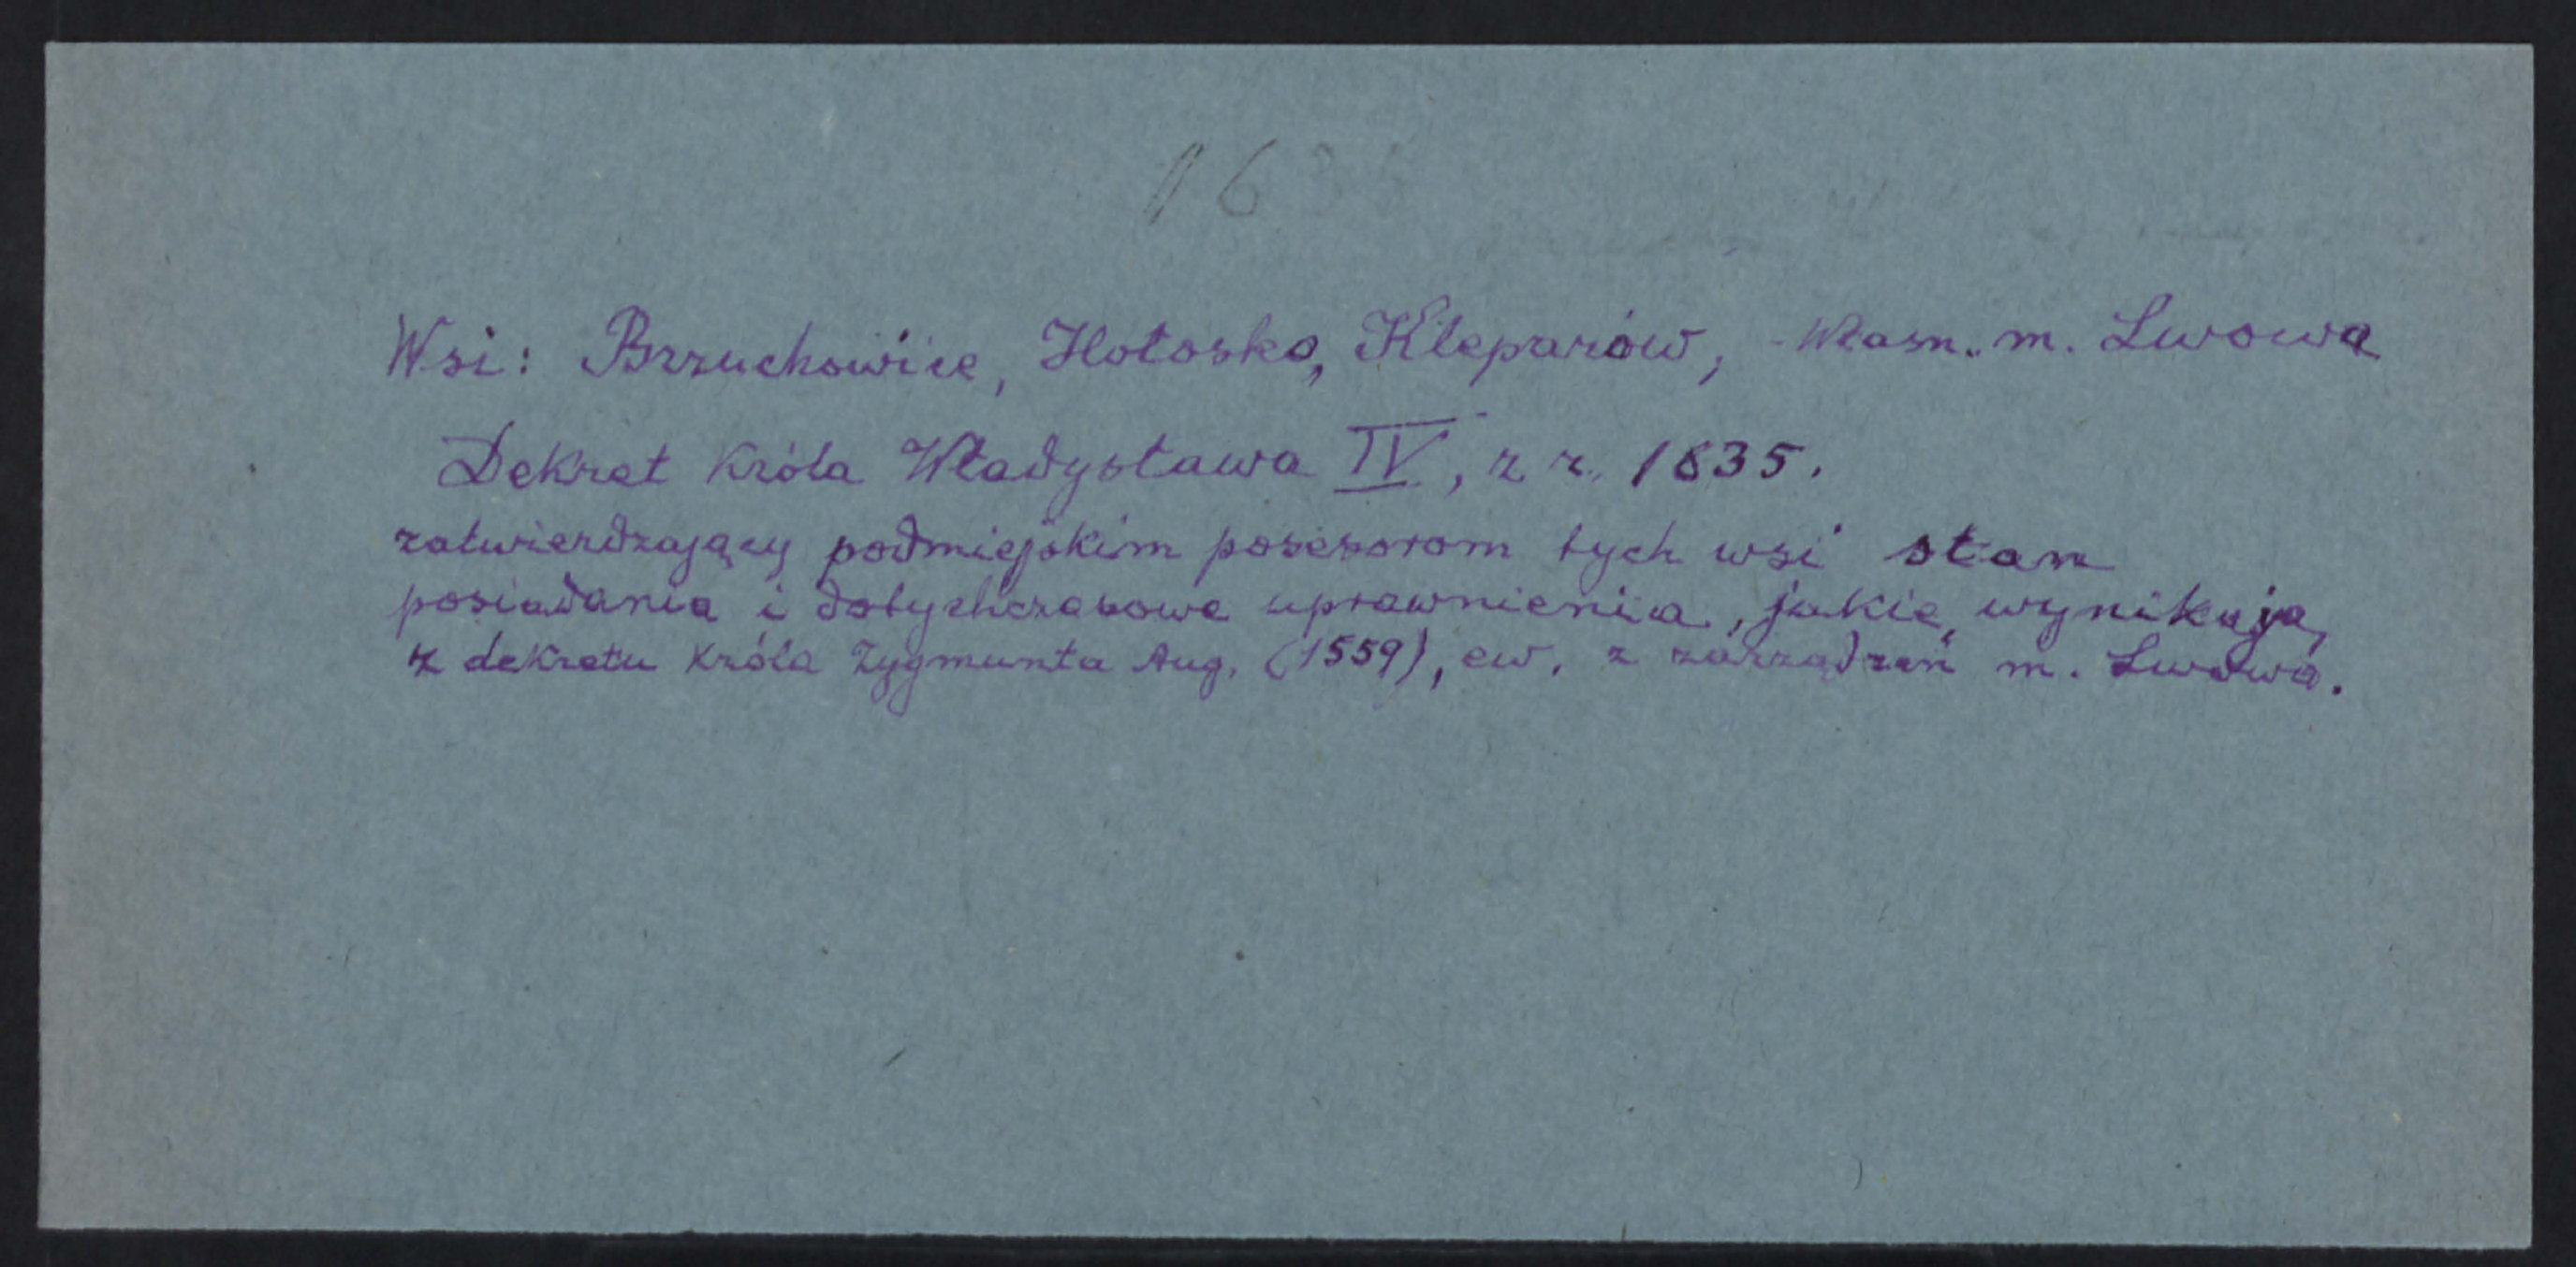 163
Wsi: Brzuchowice, Hołosko, Kleparów, - Własn. m. Lwowa
Dekret króla Władysława IV, z r. 1635.
zatwierdzający podmiejskim posesorom tych wsi stan
posiadania i dotychczasowe uprawnienia, jakie, wynikają
z dekretu króla Zygmunta Aug. (1559), ew. z zarządzeń m. Lwowa.